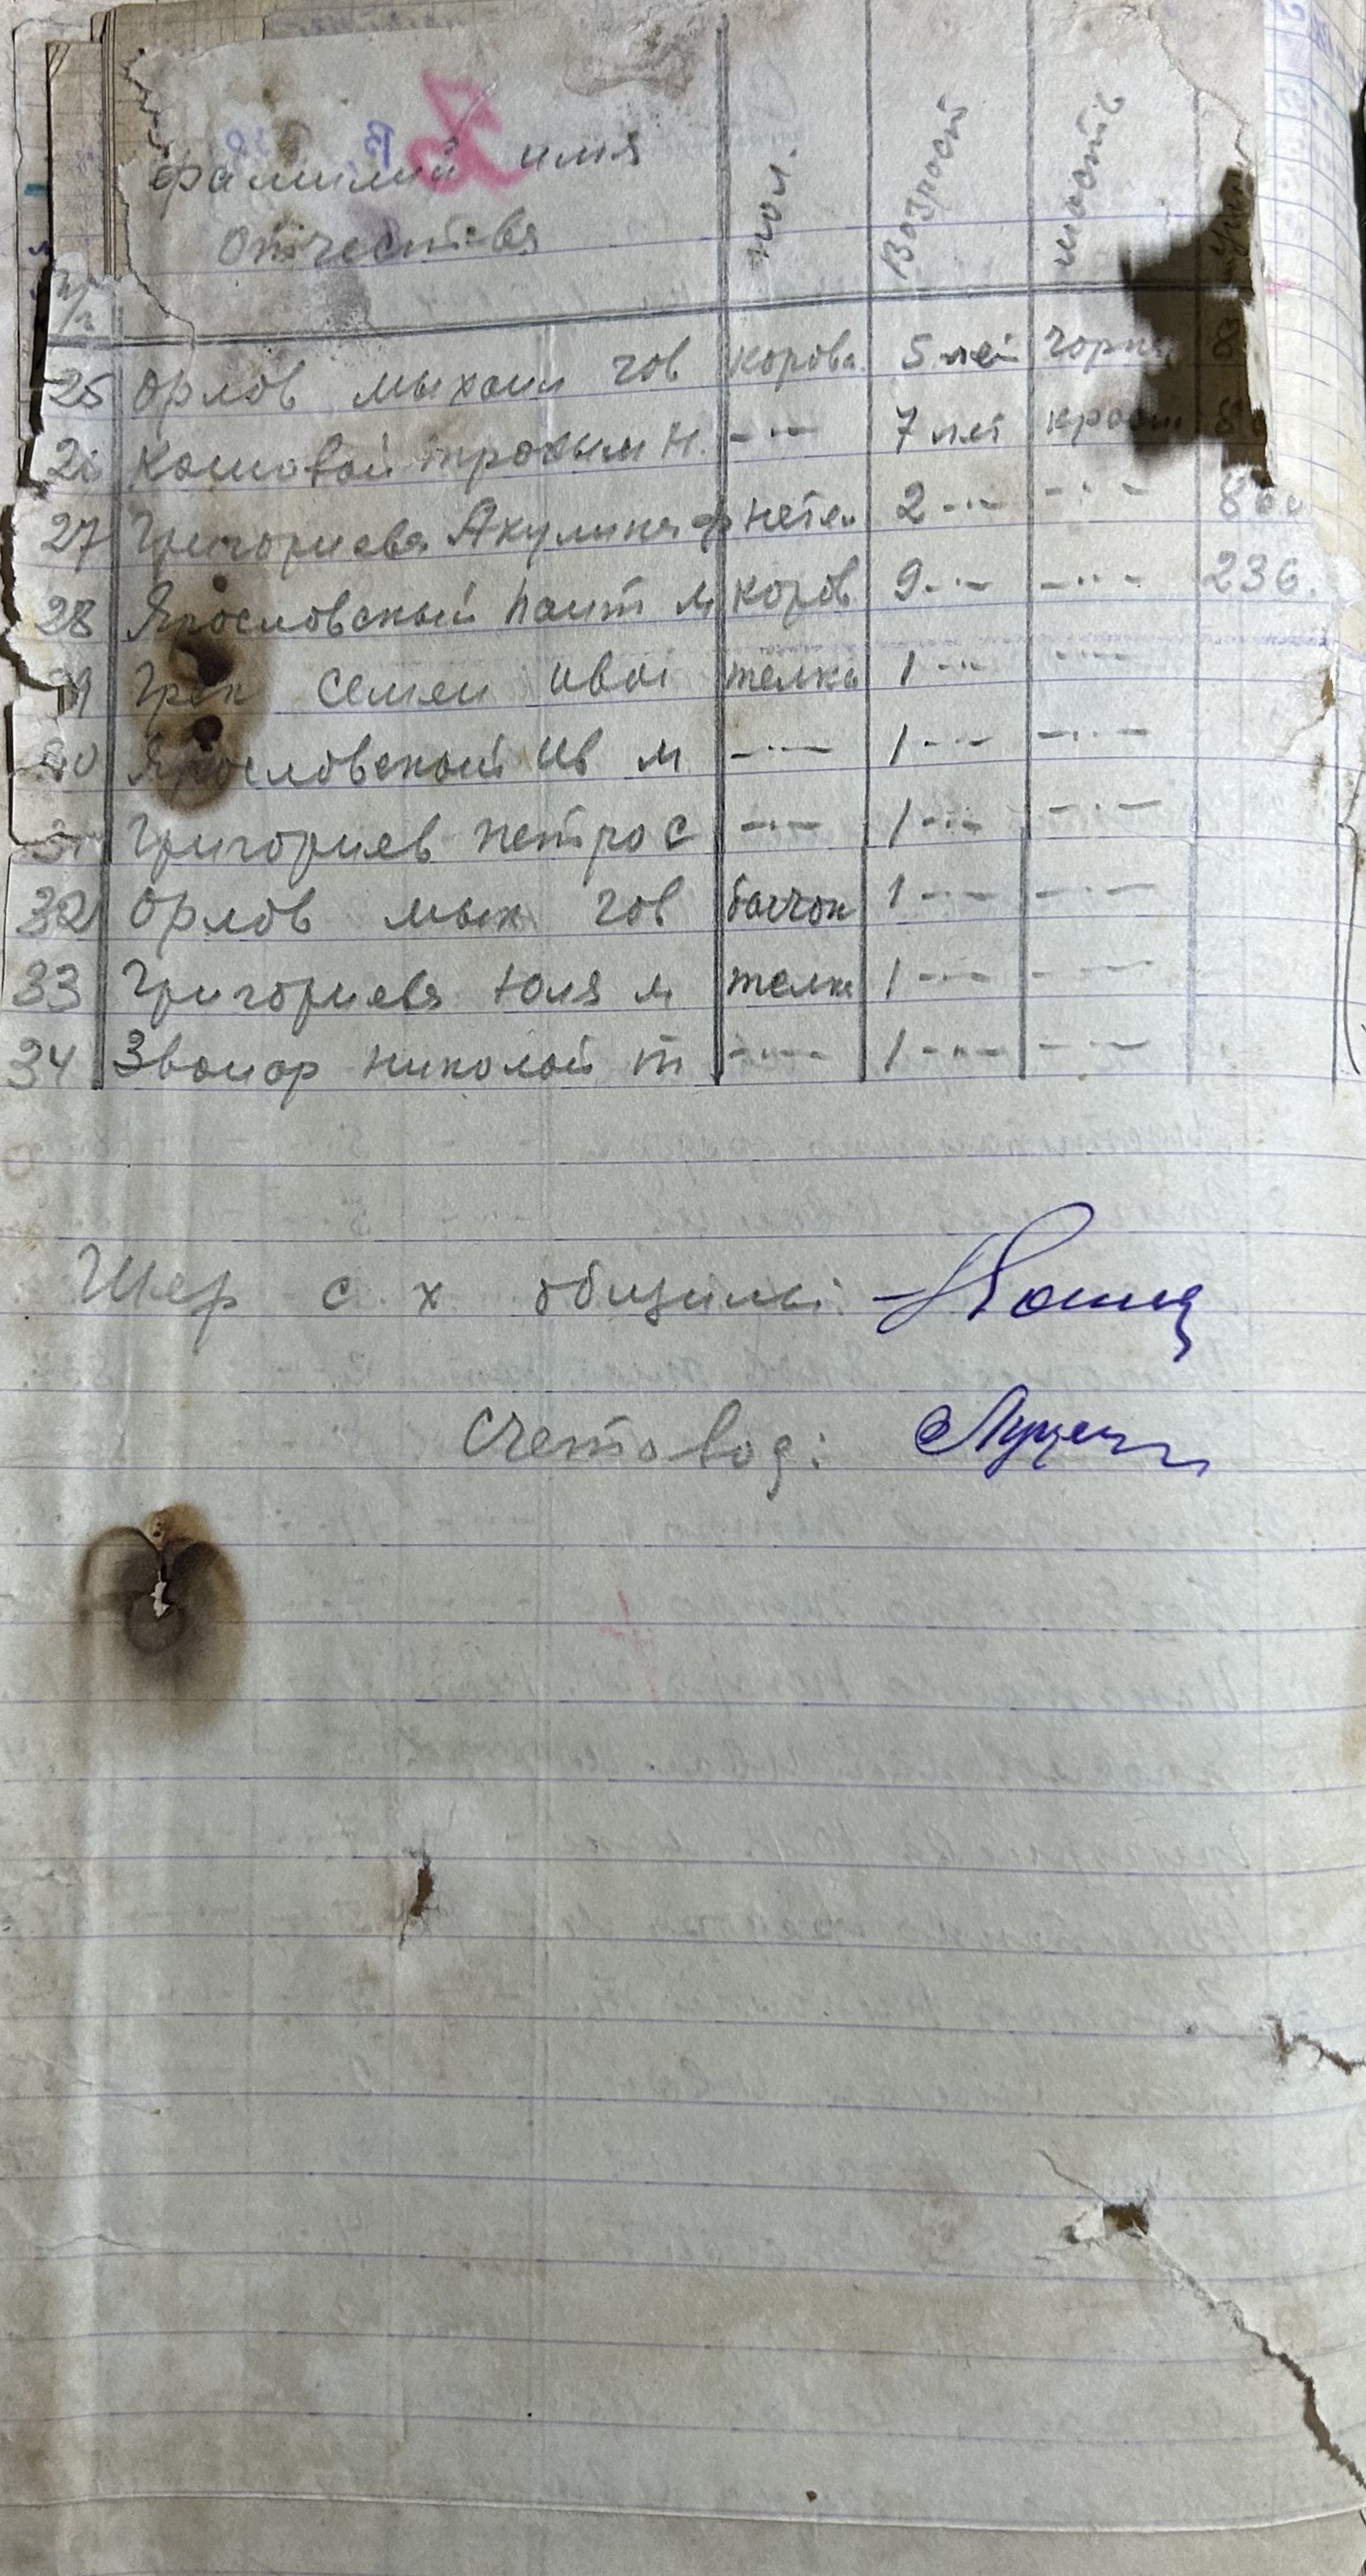 фамилий имя пол. Возрост масть
Отчества
25 Орлов мыхаил гов корова 5 лет чорн
26 Кошовой трохым Н. -"- 7 лет красн
27 Григориева Акулина ф нетел 2 -"- -"- 860
28 Ярословский пант м коров 9 -"- -"- 236.
29 Грек семен иван телка 1 -"- -"-
30 Ярословской ив м -"- 1 -"- -"-
31 Григориев петро с -"- 1 -"- -"-
32 Орлов мых гов бычок 1 -"- -"-
33 Григориева юля м телка 1 -"- -"-
34 Звонор николай т -"- 1 -"- -"-
Шеф с х общины:
Счетовод: